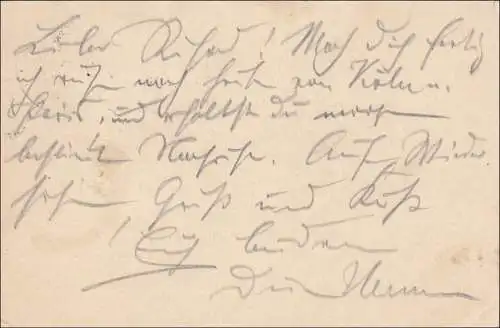 Lieber Richard! Mach dich fertig
ich reise noch heute von Köln u.
Paris, und erhältst du morgen
bestimmt Nachricht. Auf Wieder
sehen, Gruß und Kuß
Euch beiden
Dein